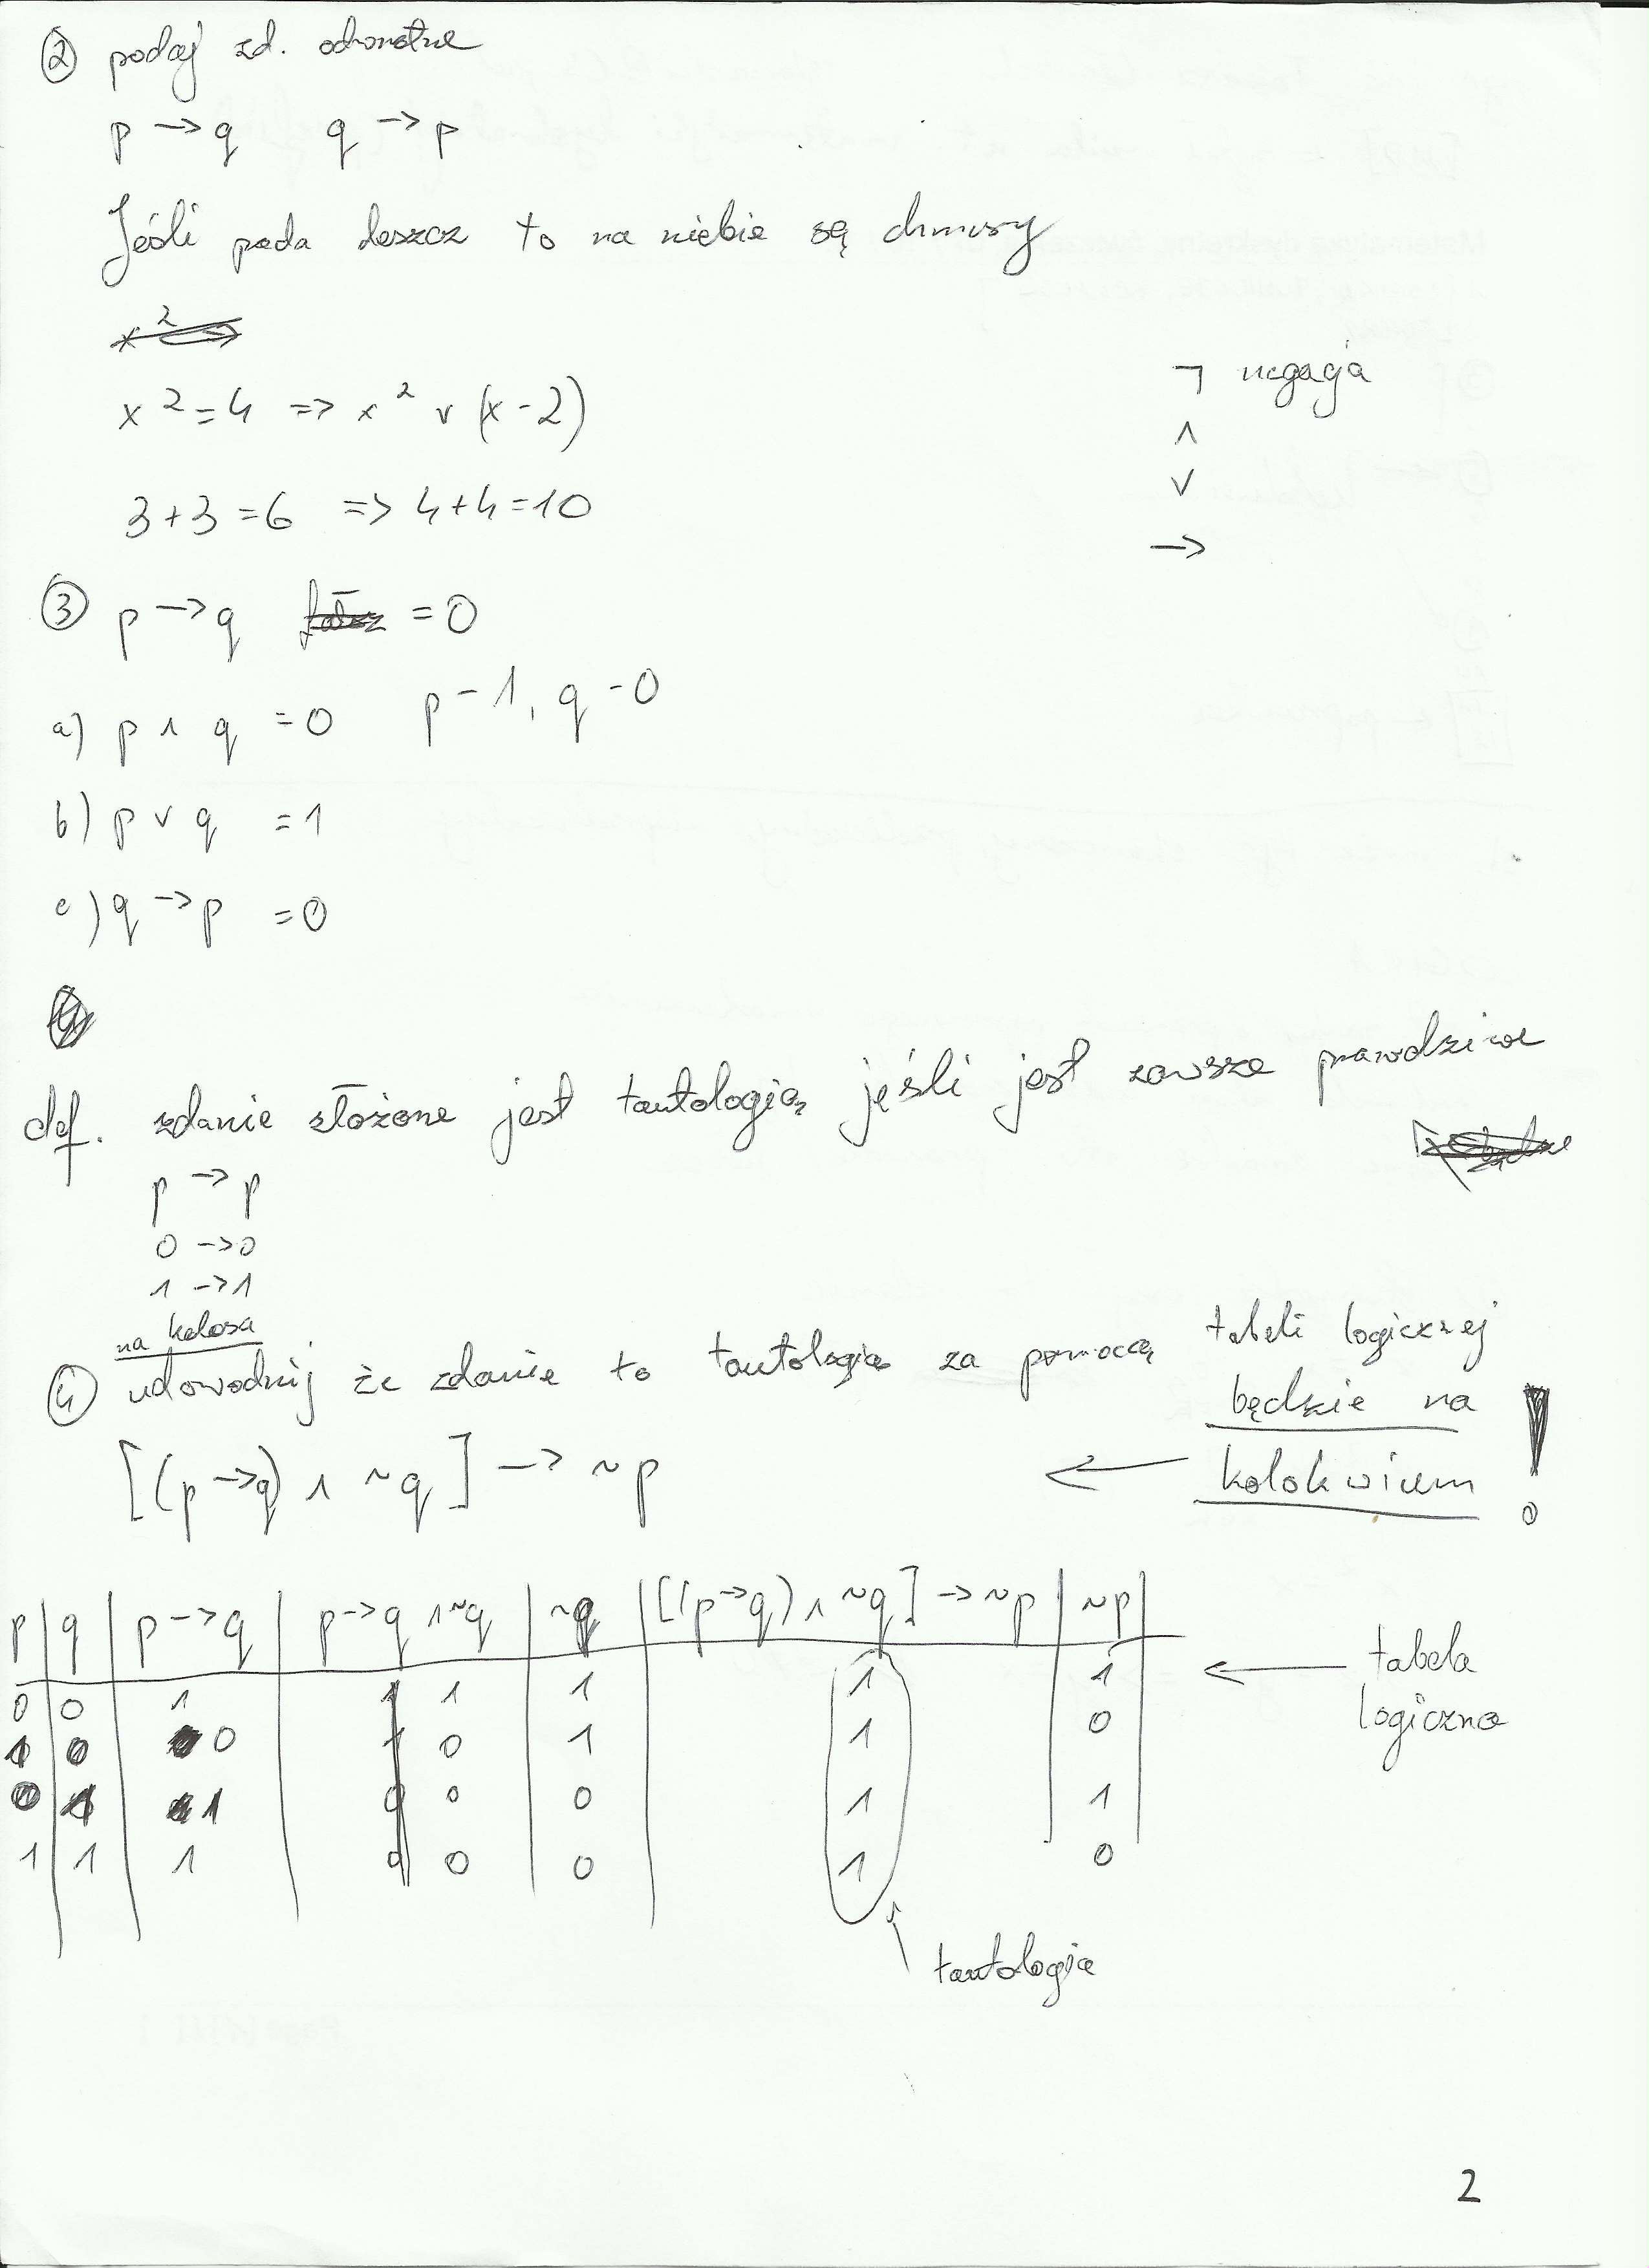 ② podaj zd. odwrotne
p → q q → p
Jeśli pada deszcz to na niebie są chmury
x² = 4 => x² v (x - 2)
¬ negacja
∧
∨
→
3 + 3 = 6 => 4 + 4 = 10
③ p → q = 0
a) p ∧ q = 0 p - 1, q - 0
b) p ∨ q = 1
c) q → p = 0
def. zdanie złożone jest tautologią jęśli jest zawsze prawdziwe
p → p
0 → 0
1 → 1
na kolosa
④ udowodnij że zdanie to tautologia za pomocą tabeli logicznej
będzie na
kolokwium !
[(p → q) ∧ ~q] → ~p ←
p | q | p → q | p → q ∧ ~q | ~q | [(p → q) ∧ ~q] → ~p | ~p
0 0 1 1 1 1 1 1
1 0 0 1 0 1 1 0
0 1 1 0 0 0 1 1
1 1 1 0 0 0 1 0
← tabela
logiczna
tautologia
2